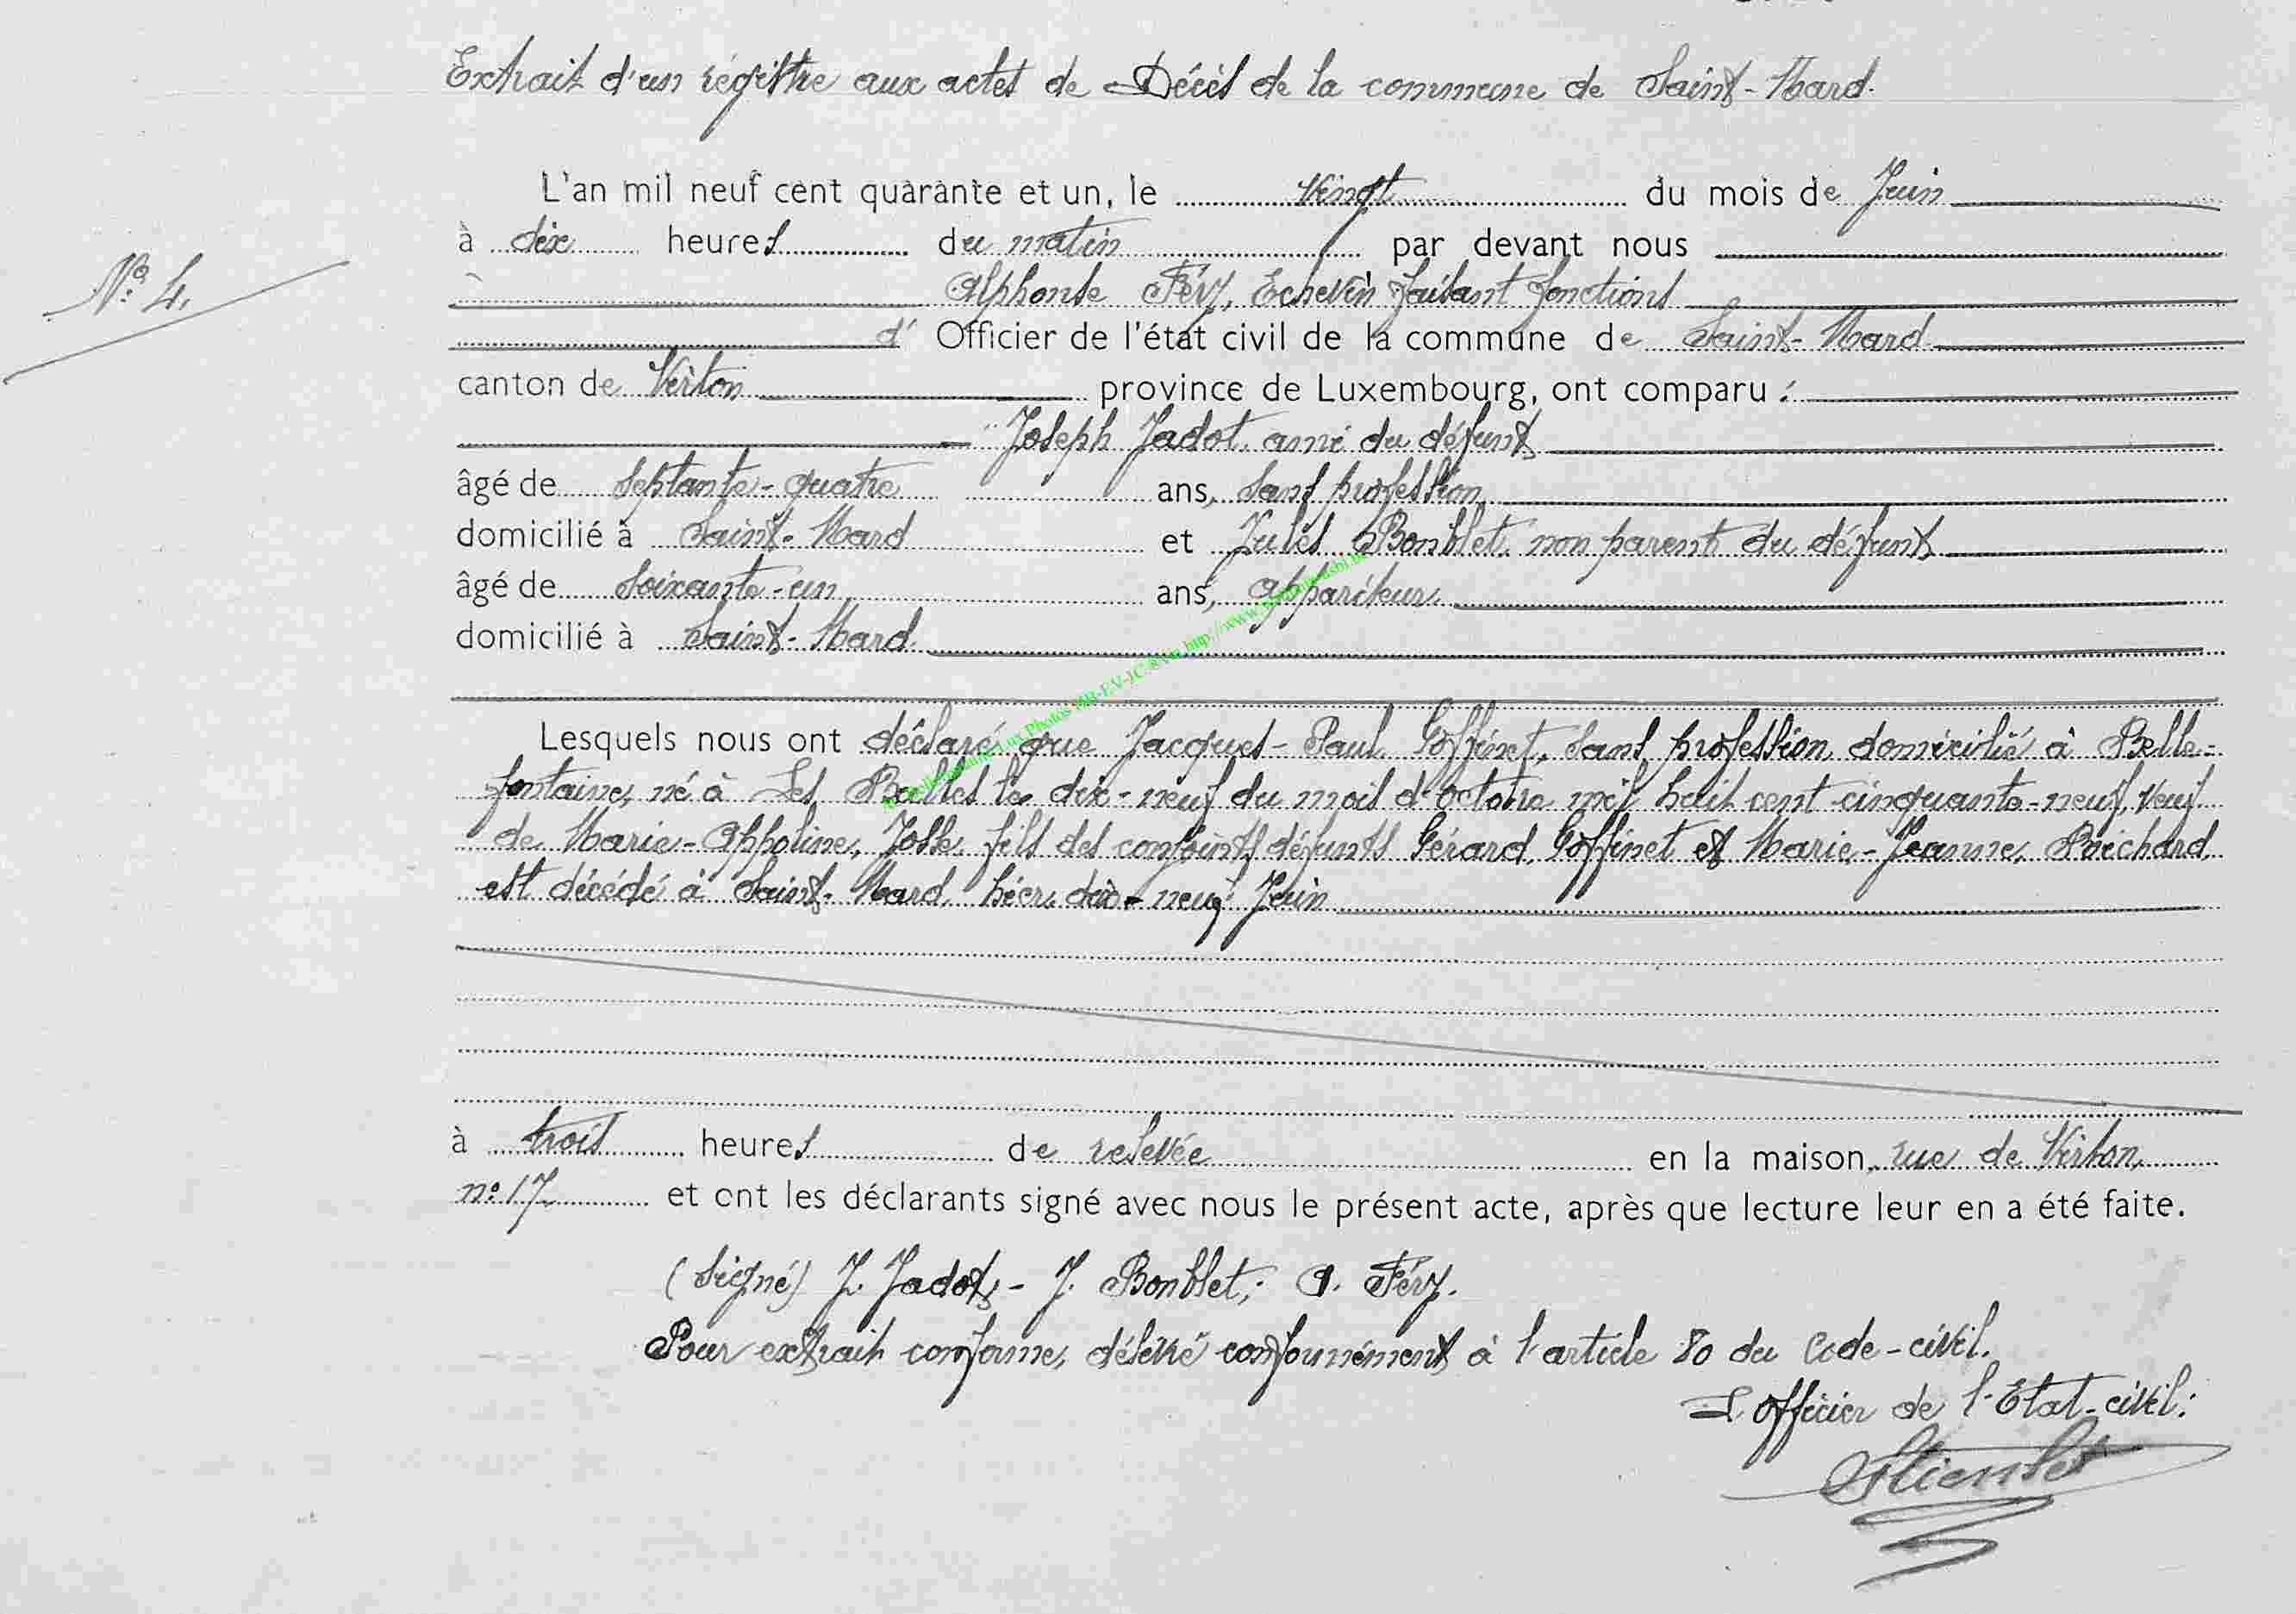 Extrait d'un régistre aux actes de Décès de la commune de Saint-Mard.
L'an mil neuf cent quarante et un, le vingt du mois de Juin
à dix heures du matin par devant nous
N° 4.
Alphonse Féry, Echevin faisant fonctions
d' Officier de l'état civil de la commune de Saint-Mard
canton de Virton province de Luxembourg, ont comparu :
Joseph Jadot, ami du défunt
âgé de septante-quatre ans, sans profession
domicilié à Saint-Mard et Jules Bonblet, non parent du défunt
âgé de soixante-un ans, appariteur
domicilié à Saint-Mard
Lesquels nous ont déclaré que Jacques-Paul Goffinet, sans profession, domicilié à Belle-
fontaine, né à Les Bulles le dix-neuf du mois d'octobre mil huit cent cinquante-neuf, veuf
de Marie-Appoline, Josse, fils des conjoints défunts Gérard, Goffinet et Marie-Jeanne, Prichard,
est décédé à Saint-Mard, hier, dix-neuf Juin
à trois heures de relevée en la maison, rue de Virton,
n° 17 et ont les déclarants signé avec nous le présent acte, après que lecture leur en a été faite.
(signé) J. Jadot, - J. Bonblet; A. Féry.
Pour extrait conforme, délivré conformément à l'article 80 du Code-civil.
L'officier de l'Etat-civil: